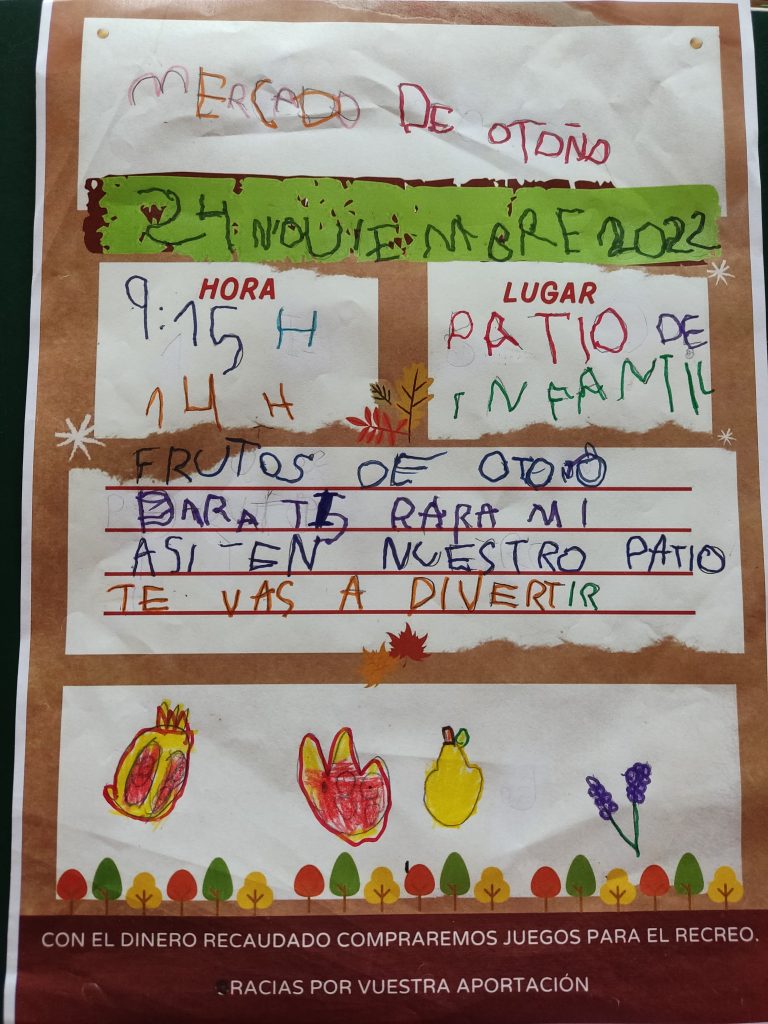 MERCADO DE OTOÑO
24 NOVIEMBRE 2022
HORA
9:15 H
14 H
LUGAR
PATIO DE
INFANTIL
FRUTOS DE OTOÑO
PARA TI PARA MI
ASI EN NUESTRO PATIO
TE VAS A DIVERTIR
CON EL DINERO RECAUDADO COMPRAREMOS JUEGOS PARA EL RECREO.
GRACIAS POR VUESTRA APORTACIÓN